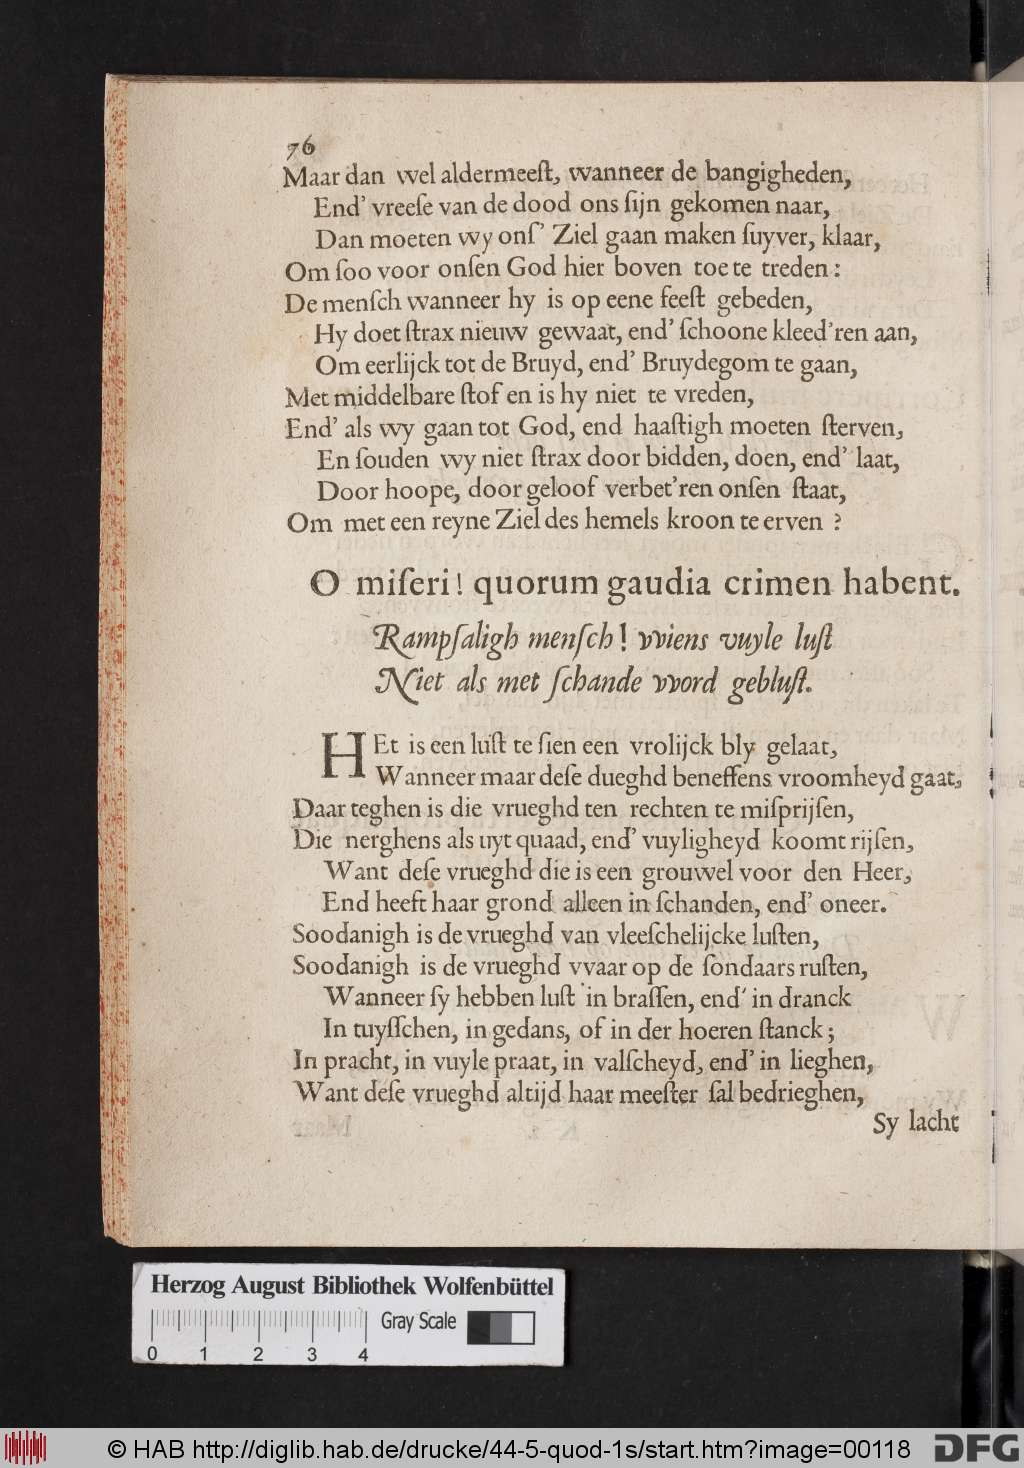 76
Maar dan wel aldermeeſt, wanneer de bangigheden,
End' vreeſe van de dood ons ſijn gekomen naar,
Dan moeten wy onſ' Ziel gaan maken ſuyver, klaar,
Om ſoo voor onſen God hier boven toe te treden:
De menſch wanneer hy is op eene feeſt gebeden,
Hy doet ſtrax nieuw gewaat, end' ſchoone kleed'ren aan,
Om eerlijck tot de Bruyd, end' Bruydegom te gaan,
Met middelbare ſtof en is hy niet te vreden,
End' als wy gaan tot God, end haaſtigh moeten ſterven,
En ſouden wy niet ſtrax door bidden, doen, end' laat,
Door hoope, door geloof verbet'ren onſen ſtaat,
Om met een reyne Ziel des hemels kroon te erven ?
O miſeri! quorum gaudia crimen habent.
Rampſaligh menſch! vviens vuyle luſt
Niet als met ſchande vvord gebluſt.
HEt is een luſt te ſien een vrolijck bly gelaat,
Wanneer maar deſe dueghd beneffens vroomheyd gaat,
Daar teghen is die vrueghd ten rechten te miſprijſen,
Die nerghens als uyt quaad, end' vuyligheyd koomt rijſen,
Want deſe vrueghd die is een grouwel voor den Heer,
End heeft haar grond alleen in ſchanden, end' oneer.
Soodanigh is de vrueghd van vleeſchelijcke luſten,
Soodanigh is de vrueghd vvaar op de ſondaars ruſten,
Wanneer ſy hebben luſt in braſſen, end' in dranck
In tuyſſchen, in gedans, of in der hoeren ſtanck;
In pracht, in vuyle praat, in valſcheyd, end' in lieghen,
Want deſe vrueghd altijd haar meeſter ſal bedrieghen,
Sy lacht
Herzog August Bibliothek Wolfenbüttel
Gray Scale
0 1 2 3 4
© HAB http://diglib.hab.de/drucke/44-5-quod-1s/start.htm?image=00118
DFG